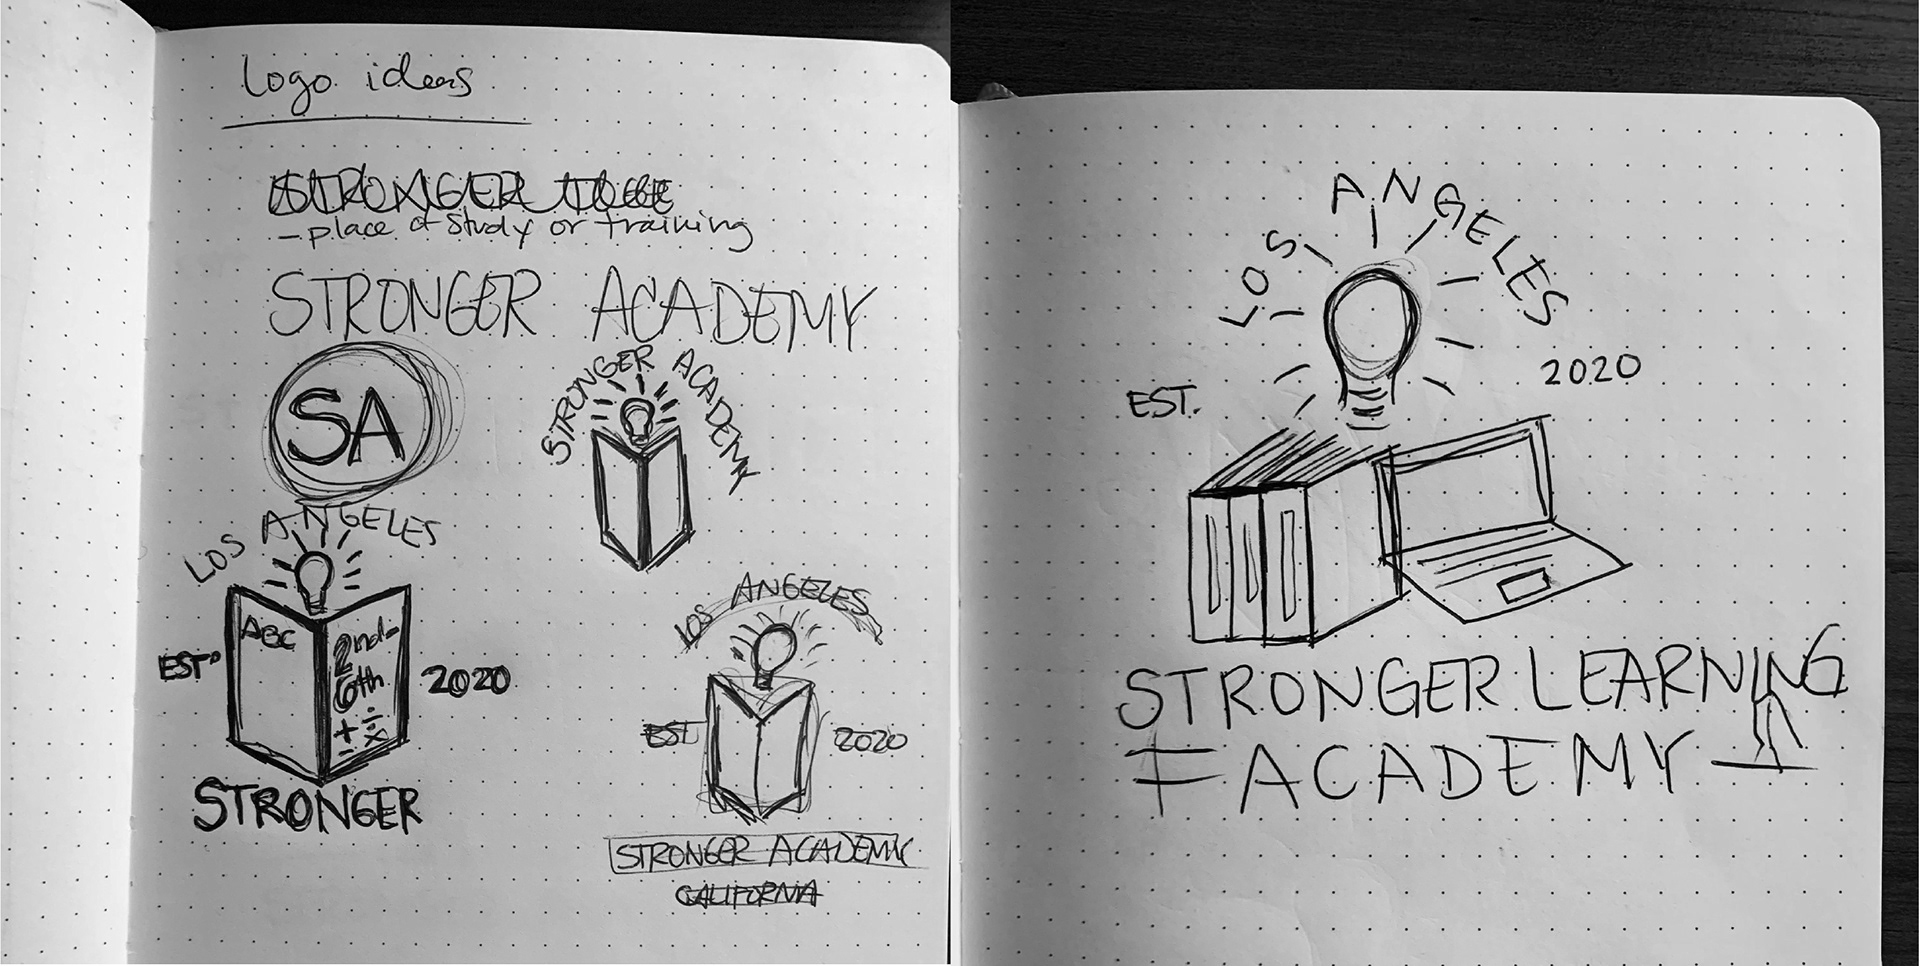 Logo ideas
STRONGER
- place of study or training
STRONGER ACADEMY
SA
STRONGER ACADEMY
LOS ANGELES
ABC
2nd-
6th
+ ÷
- ×
EST.
2020
STRONGER
LOS ANGELES
EST.
2020
STRONGER ACADEMY
CALIFORNIA
LOS ANGELES
EST.
2020
STRONGER LEARNING
ACADEMY